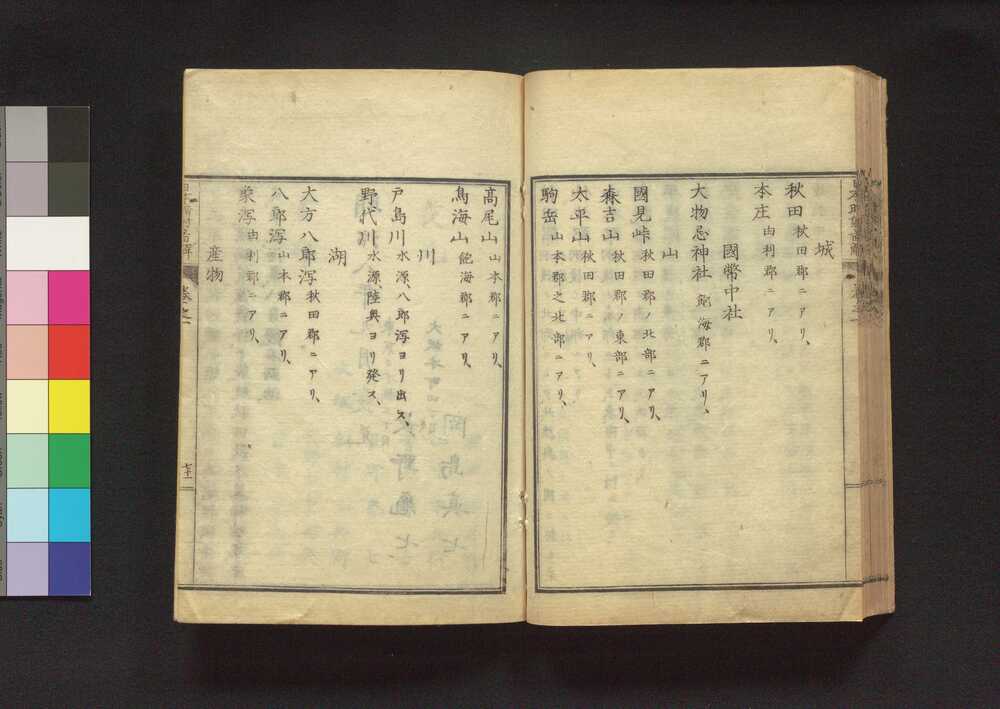 城
秋田 秋田郡ニアリ、
本庄 由利郡ニアリ、
國幣中社
大物忌神社 飽海郡ニアリ、
山
國見峠 秋田郡ノ北部ニアリ、
森吉山 秋田郡ノ東部ニアリ、
太平山 秋田郡ニアリ、
駒岳 山本郡之北部ニアリ、
高尾山 山本郡ニアリ、
鳥海山 飽海郡ニアリ、
川
戸島川 水源、八郎潟ヨリ出ス、
野代川 水源、陸奥ヨリ発ス、
湖
大方八郎潟 秋田郡ニアリ、
八郎潟 山本郡ニアリ、
象潟 由利郡ニアリ、
産物